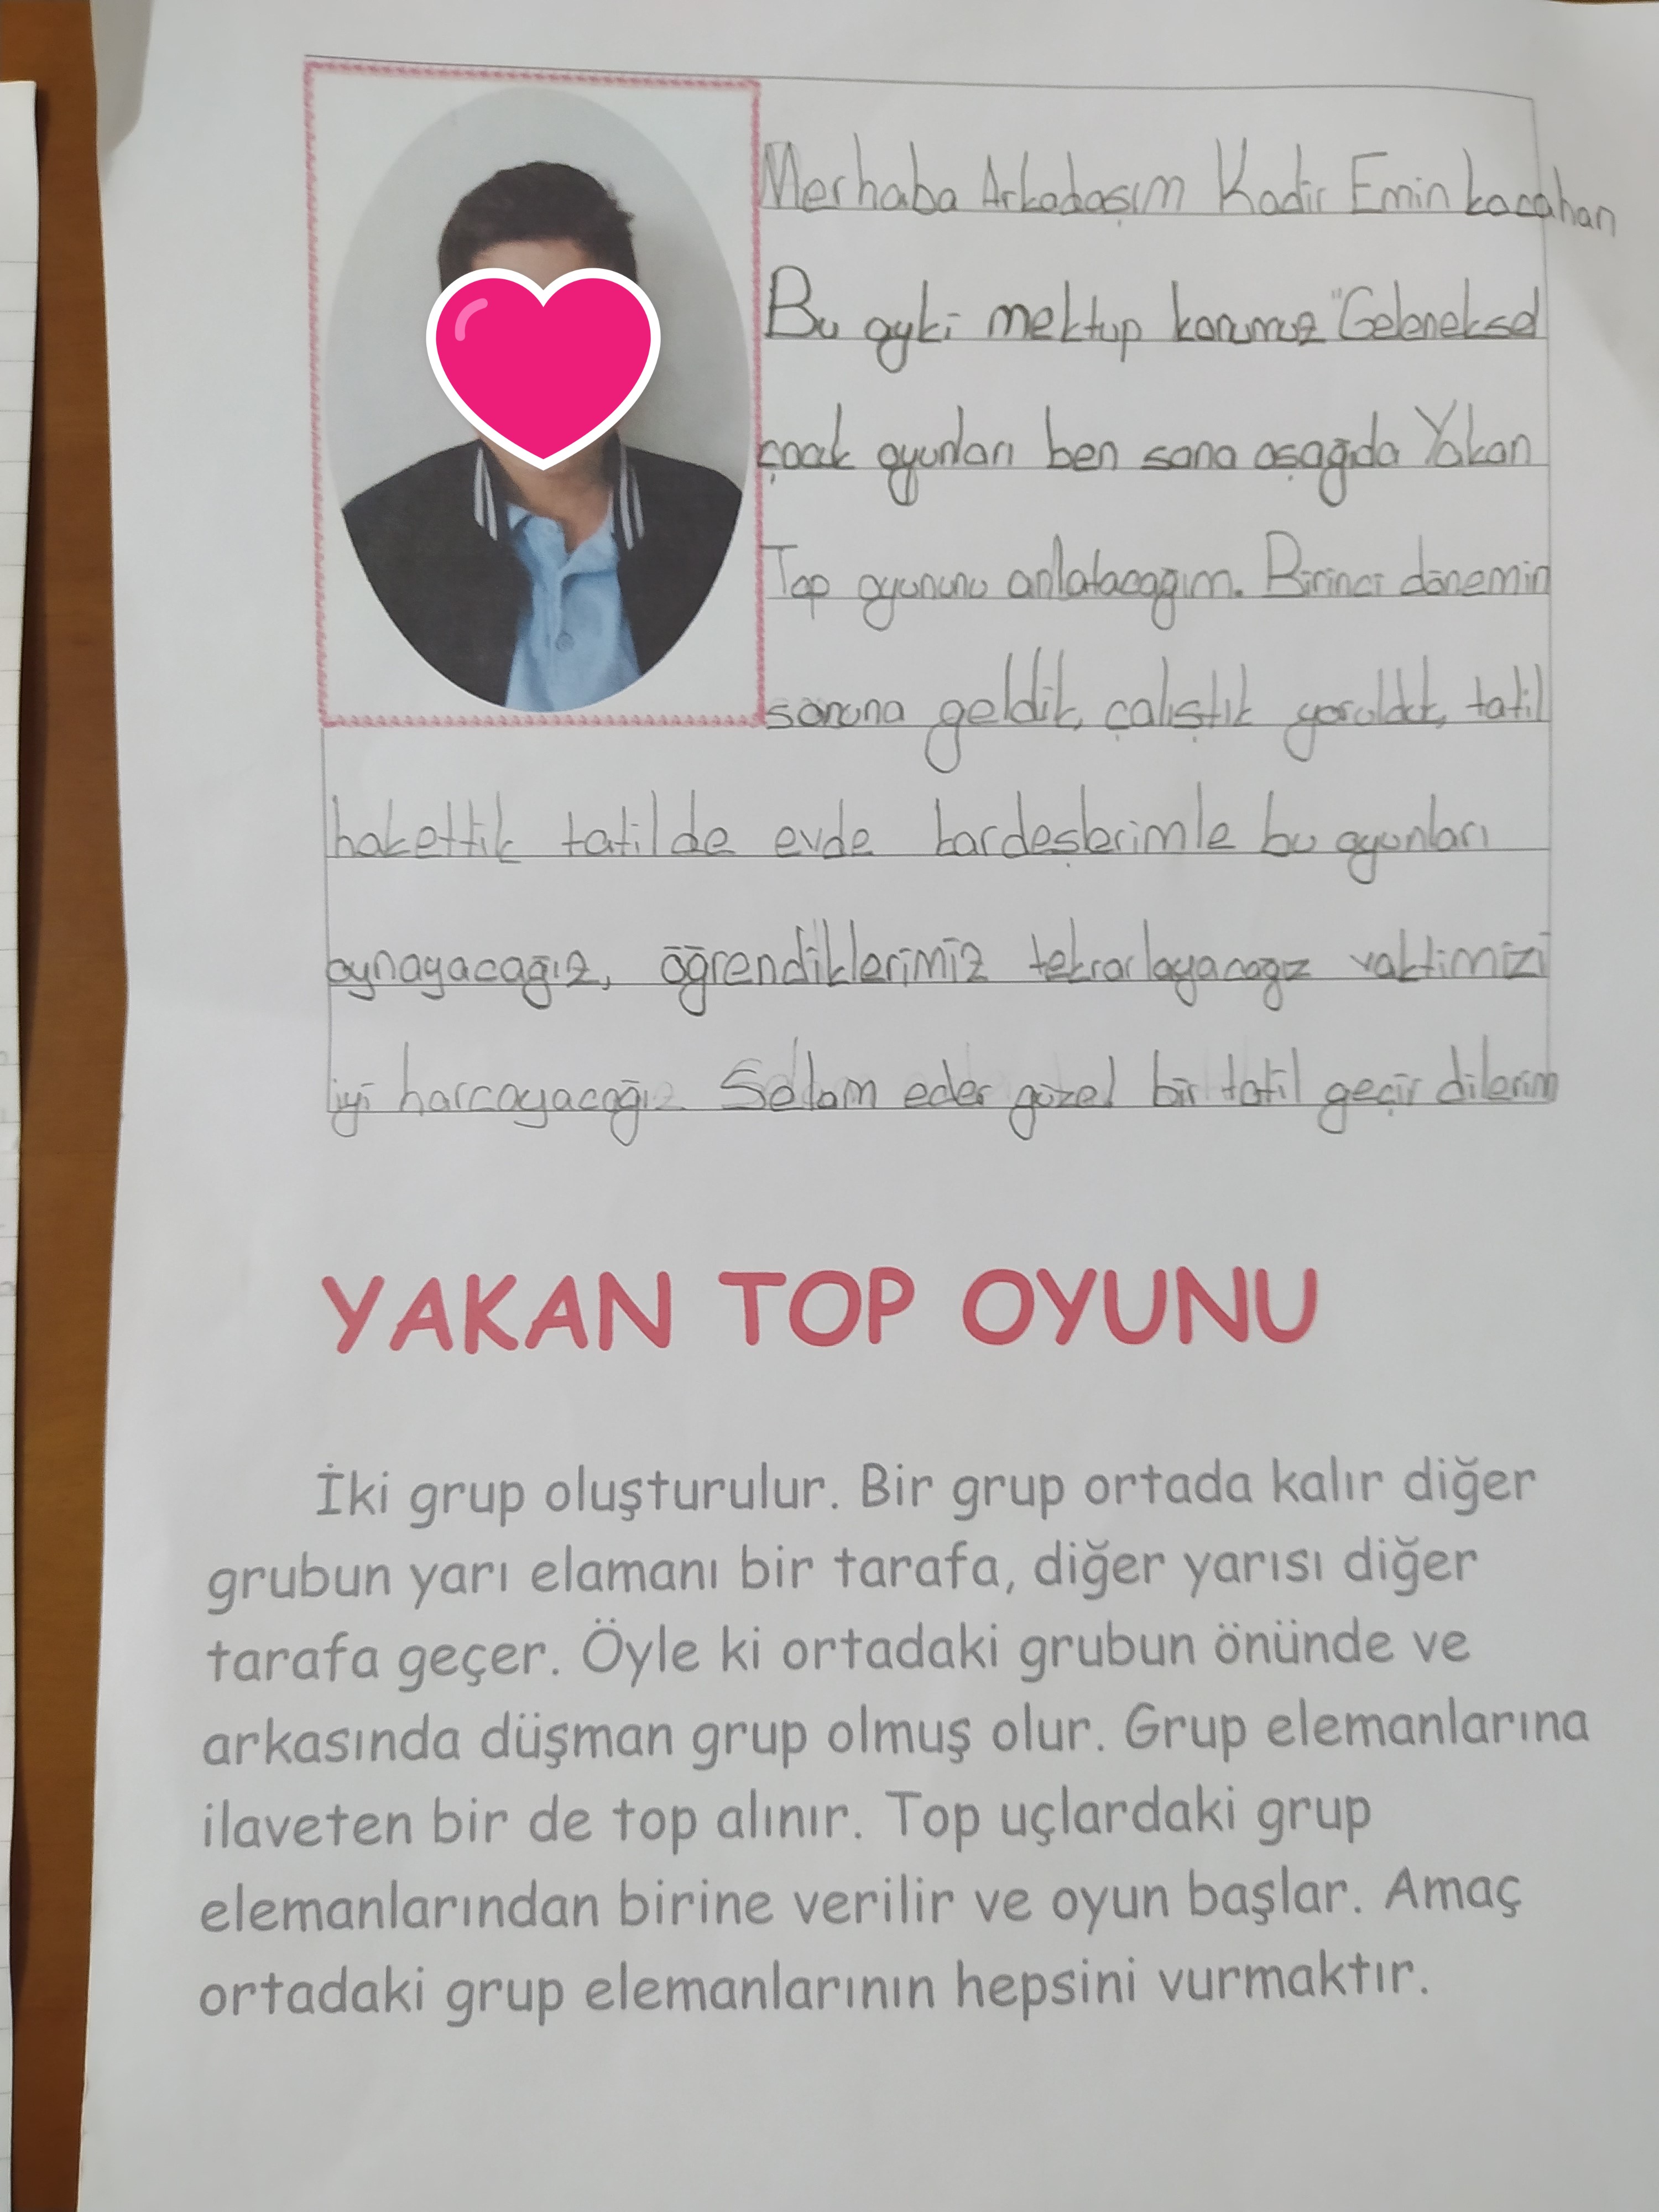 Merhaba Arkadaşım Kadir Emin
Bu ayki mektup konumuz "Geleneksel
çocuk oyunları ben sana aşağıda Yakan
Top oyununu anlatacağım. Birinci dönemin
sonuna geldik, çalıştık yorulduk, tatil
hakettik tatilde evde kardeşlerimle bu oyunları
oynayacağız, öğrendiklerimiz tekrarlayacağız vaktimizi
iyi harcayacağız. Selam eder güzel bir tatil geçir dilerim
YAKAN TOP OYUNU
İki grup oluşturulur. Bir grup ortada kalır diğer
grubun yarı elamanı bir tarafa, diğer yarısı diğer
tarafa geçer. Öyle ki ortadaki grubun önünde ve
arkasında düşman grup olmuş olur. Grup elemanlarına
ilaveten bir de top alınır. Top uçlardaki grup
elemanlarından birine verilir ve oyun başlar. Amaç
ortadaki grup elemanlarının hepsini vurmaktır.